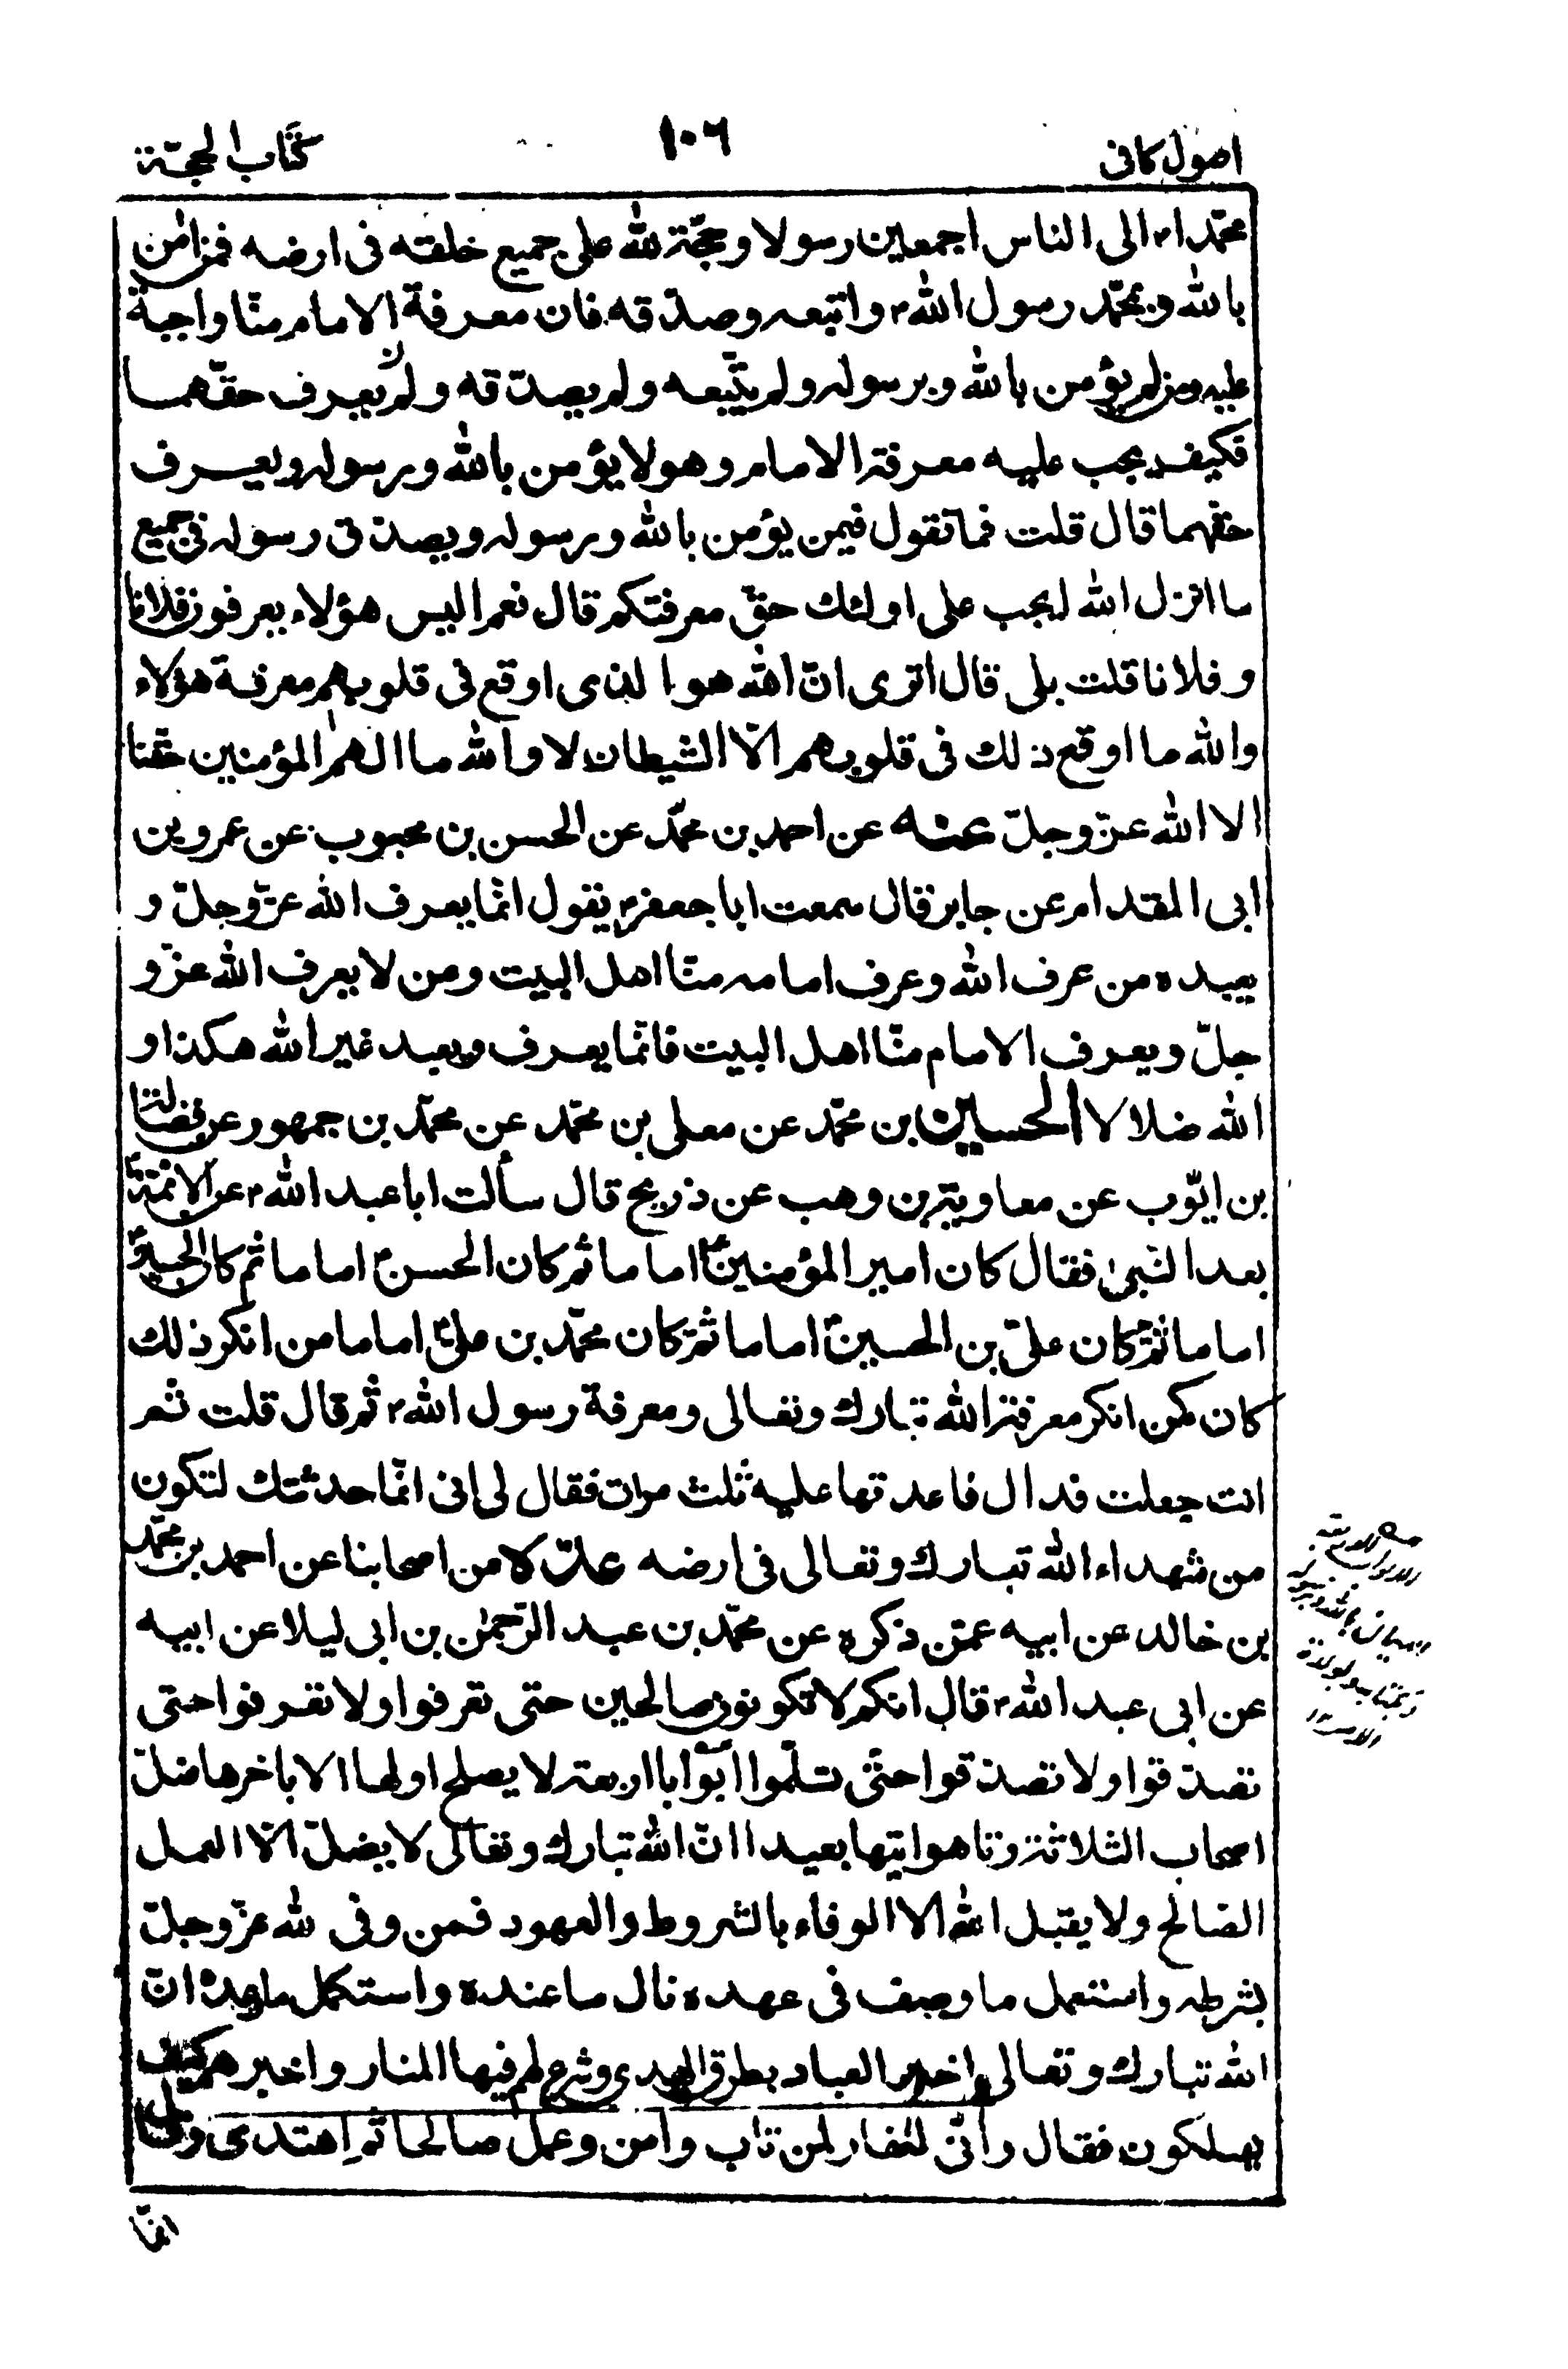 اصول كافى
١٠٦
كتاب الحجّة
محمّدا ص الى الناس اجمعين رسولا و حجّة لله على جميع خلقه فى ارضه فمن امن
بالله و بمحمّد رسول الله ص واتبعه وصدّقه فان معرفة الامام منّا واجبة
عليه ومن لم يؤمن بالله وبرسوله ولم يتّبعه ولم يصدّقه ولم يعرف حقّهما
فكيف يجب عليه معرفة الامام وهو لا يؤمن بالله ورسوله ويعرف
حقهما قال قلت فما تقول فيمن يؤمن بالله ورسوله ويصدّق رسوله فى جميع
ما انزل الله ايجب على اولئك حقّ معرفتكم قال نعم اليس هؤلاء يعرفون فلانا
وفلانا قلت بلى قال اترى انّ الله هو الذى اوقع فى قلوبهم معرفة هؤلاء
والله ما اوقع ذلك فى قلوبهم الّا الشيطان لا والله ما الهم المؤمنين حقّنا
الا الله عزّ وجلّ عنه عن احمد بن محمّد عن الحسن بن محبوب عن عمرو بن
ابى المقدام عن جابر قال سمعت ابا جعفر ع يقول انّما يعرف الله عزّ وجلّ و
يعبده من عرف الله وعرف امامه منّا اهل البيت ومن لا يعرف الله عزّ و
جلّ ويعرف الامام منّا اهل البيت فانّما يعرف ويعبد غير الله هكذا و
الله ضلالا الحسين بن محمّد عن معلى بن محمّد عن محمّد بن جمهور عن فضالة
بن ايّوب عن معاوية بن وهب عن ذريح قال سألت ابا عبد الله ع عن الائمّة
بعد النّبى فقال كان امير المؤمنين ع اماما ثم كان الحسن ع اماما ثم كان الحسين ع
اماما ثمّ كان علىّ بن الحسين ع اماما ثمّ كان محمّد بن علىّ ع اماما من انكر ذلك
كان كمن انكر معرفة الله تبارك وتعالى ومعرفة رسول الله ص ثم قال قلت ثم
انت جعلت فداك فاعدتها عليه ثلث مرات فقال لى انى انّما حدثتك لتكون
من شهداء الله تبارك وتعالى فى ارضه عدّة من اصحابنا عن احمد بن محمّد
بن خالد عن ابيه عمّن ذكره عن محمّد بن عبد الرّحمن بن ابى ليلا عن ابيه
عن ابى عبد الله ع قال انكم لا تكونون صالحين حتى تعرفوا ولا تعرفوا حتى
تصدّقوا ولا تصدّقوا حتّى تسلّموا ابوابا اربعة لا يصلح اولها الا باخرها ضلّ
اصحاب الثلاثة وتاهوا تيها بعيدا انّ الله تبارك وتعالى لا يضلّ الّا العمل
الصالح ولا يقبل الله الا الوفاء بالشروط والعهود فمن وفى لله عزّ وجلّ
بشرطه واستعمل ما وصف فى عهده نال ما عنده واستكمل ما وعده انّ
الله تبارك وتعالى اخبر العباد بطرق الهدى وشرع لهم فيها المنار واخبرهم كيف
يهلكون فقال وانّى لغفار لمن تاب وامن وعمل صالحا ثم اهتدى وقال
انّما